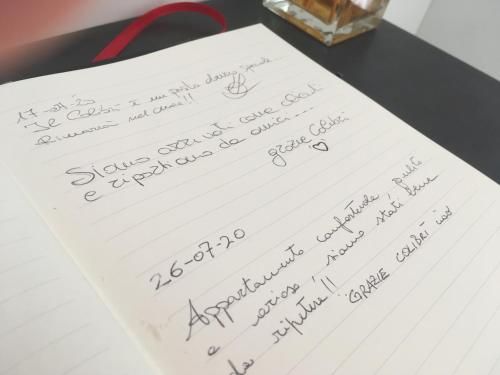 17-07-20
Il Colibrì è un posto davvero speciale...
Rimarrà nel cuore!!
Siamo arrivati come clienti
e ripartiamo da amici....
grazie Colibrì
26-07-20
Appartamento confortevole, pulito
e , siamo stati bene
da ripetere!! GRAZIE COLIBRÌ